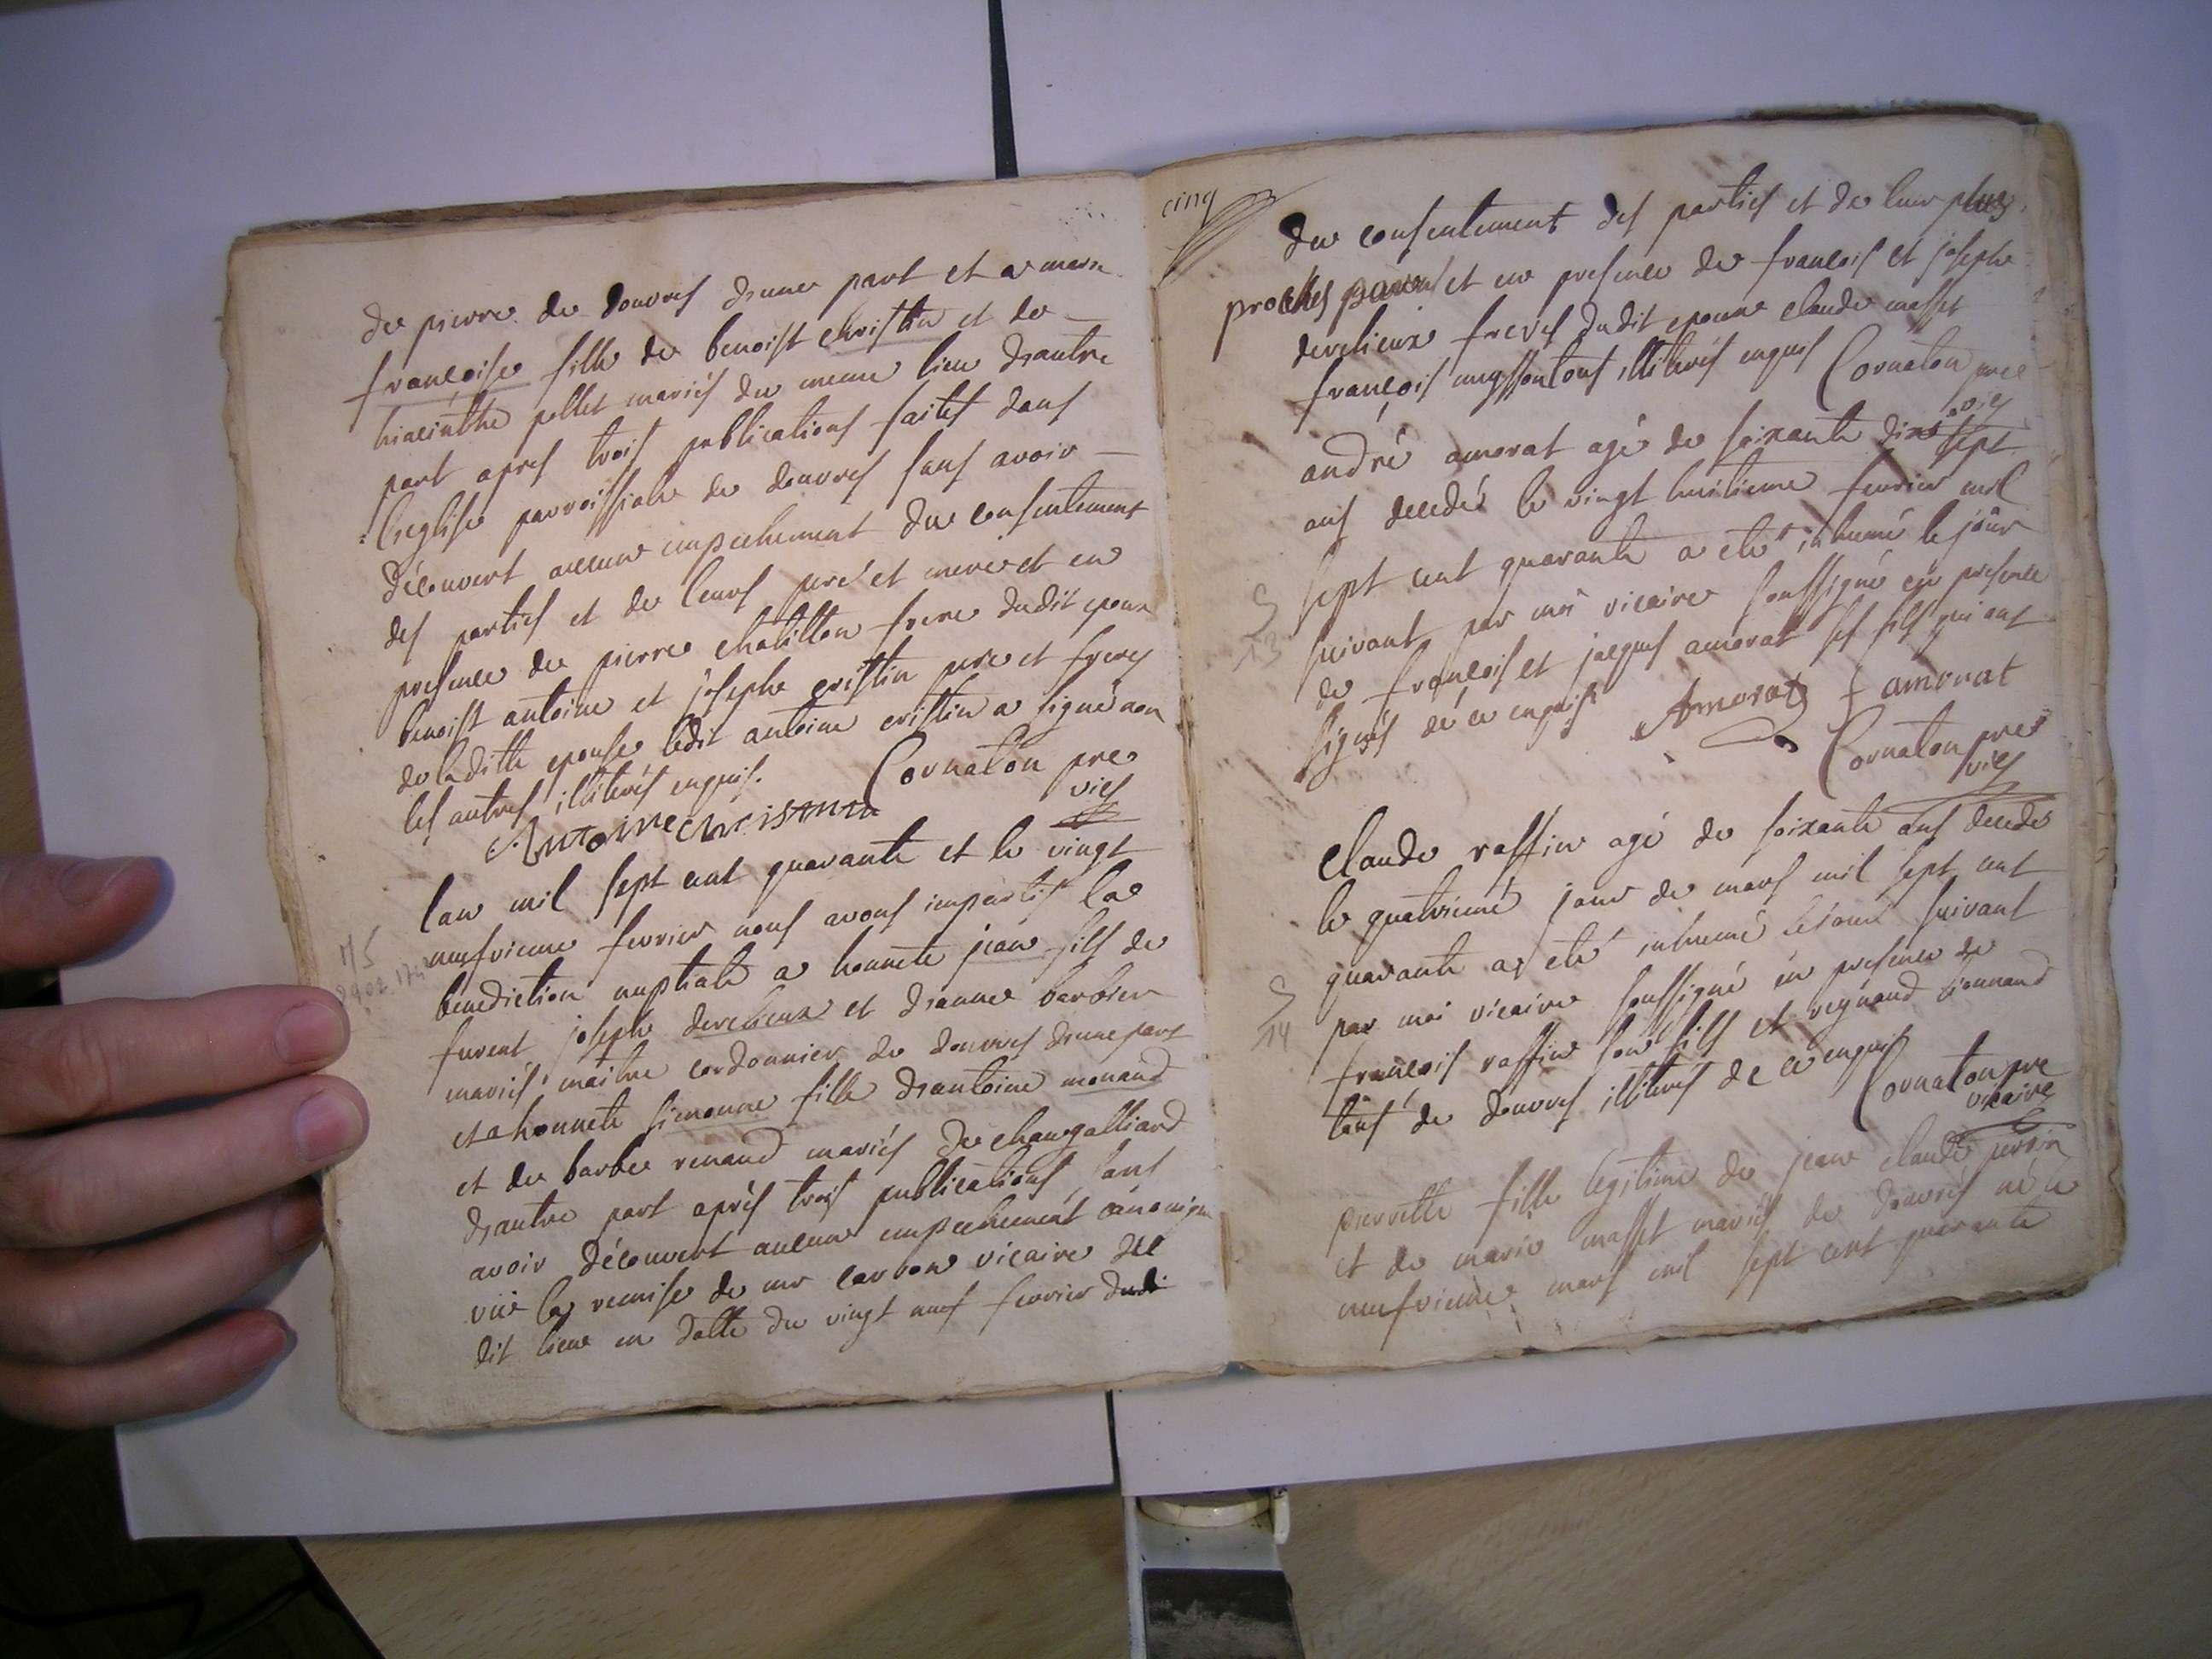 de pierre de douvres d'une part et a
françoise fille de benoist christin et de
hiacinthe pellet mariés du meme lieu d'autre
part apres trois publications faites dans
l'eglise parroissiale de douvres sans avoir
découvert aucun empechement du consentement
des parties et de leurs pere et mere et en
presence de pierre chatillon frere dudit epoux
benoist antoine et josephe cristin pere et freres
de laditte epouse ledit antoine cristin a signé non
les autres illiterés enquis. Cornaton pre
vic
Antoine christin
lan mil sept cent quarante et le vingt
neufvieme fevrier nous avons imparti la
benediction nuptiale a honnete jean fils de
furent joseph derelieux et d'anne barbier
mariés maitre cordonnier de douvres d'une part
et a honnete simonne fille d'antoine monand
et de barbe renaud mariés de chaugalliard
d'autre part aprés trois publications sans
avoir découvert aucun empechement canonique
vüe la remise de mr carron vicaire du
dit lieu en datte du vingt neuf fevrier dudi
M5
cinq
du consentement des parties et de leur plus
proches parens et en presence de françois et josephe
derelieux freres dudit epoux claude masset
françois illiterés enquis Cornaton pre
vic
andré amorat agé de soixante dix sept
ans decedé le vingt huitieme fevrier mil
sept cent quarante a eté inhumé le jour
suivant par moi vicaire soussigné en presence
de françois et jacques amorat ses fils qui ont
signés de ce enquis Amorat f amorat
Cornaton pre
vic
S
13
claude raffin agé de soixante ans decedé
le quatrieme jour de mars mil sept cent
quarante a eté inhumé le jour suivant
par moi vicaire soussigné en presence de
françois raffin son fils et reynaud
tous de douvres illiterés de ce enquis
Cornaton pre
vicaire
S
14
pierrette fille legitime de jean claude
et de marie masset mariés de douvres née le
neufvieme mars mil sept cent quarante